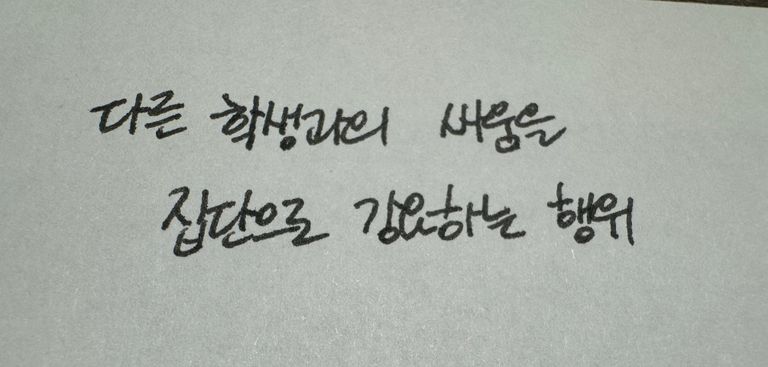 다른 학생과의 싸움을
집단으로 강요하는 행위